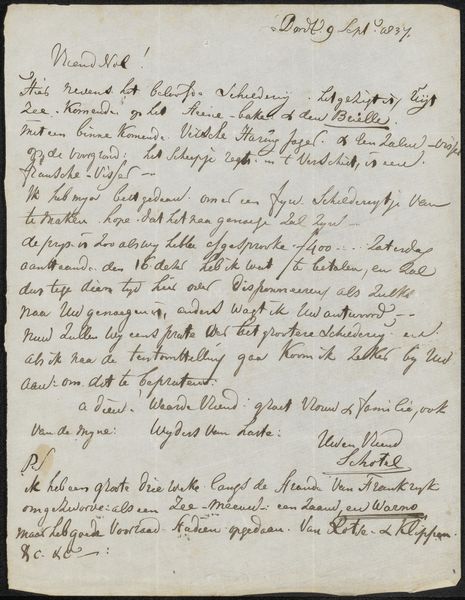 Dordt. 9 Septr. 1837.
Vriend Nol!
Hier nevens het beloofde Schilderij. het gezigt is, Uijt
Zee. Komende op het Steene-baken & den Brielle.
met een binne Komende Vissche Haring Jager. & Een Zalm-visser
op de voorgrond: het Scheepje regts in 't verschiet, is een
fransche-Visser —
Ik heb mijn best gedaan om er een fijn Schilderijtje van
te maken. hope dat het naar genoege zal zijn —
de prijs is zoo als wij hebbe afgesproke f400 .... Zaturdag
aanstaande. den 16 deser heb ik wat te betalen, en zal
dus tege dien tijd hier over disponneeren als zulks
naar Uw genoegen is, anders wagt ik Uw antwoord, —
nuw zullen wij eens prate over het grootere Schilderij en
als ik naa de tentoonstelling gaa Koom ik zeker bij Uw
aan: om dit te bepraten.
adieu! Waarde Vriend: groet Vrouw & familie, ook
van de mijne: Wijders van harte:
Uwen Vriend
Schotel
PS
ik heb een groote drie weke langs de Strande van Frankrijk
omgezworve: als een Zee-meeuw. en zaand, en Warno
maar heb goede Voorraad Studien opgedaan. Van Rotse- & Klippen.
&c. &c —: